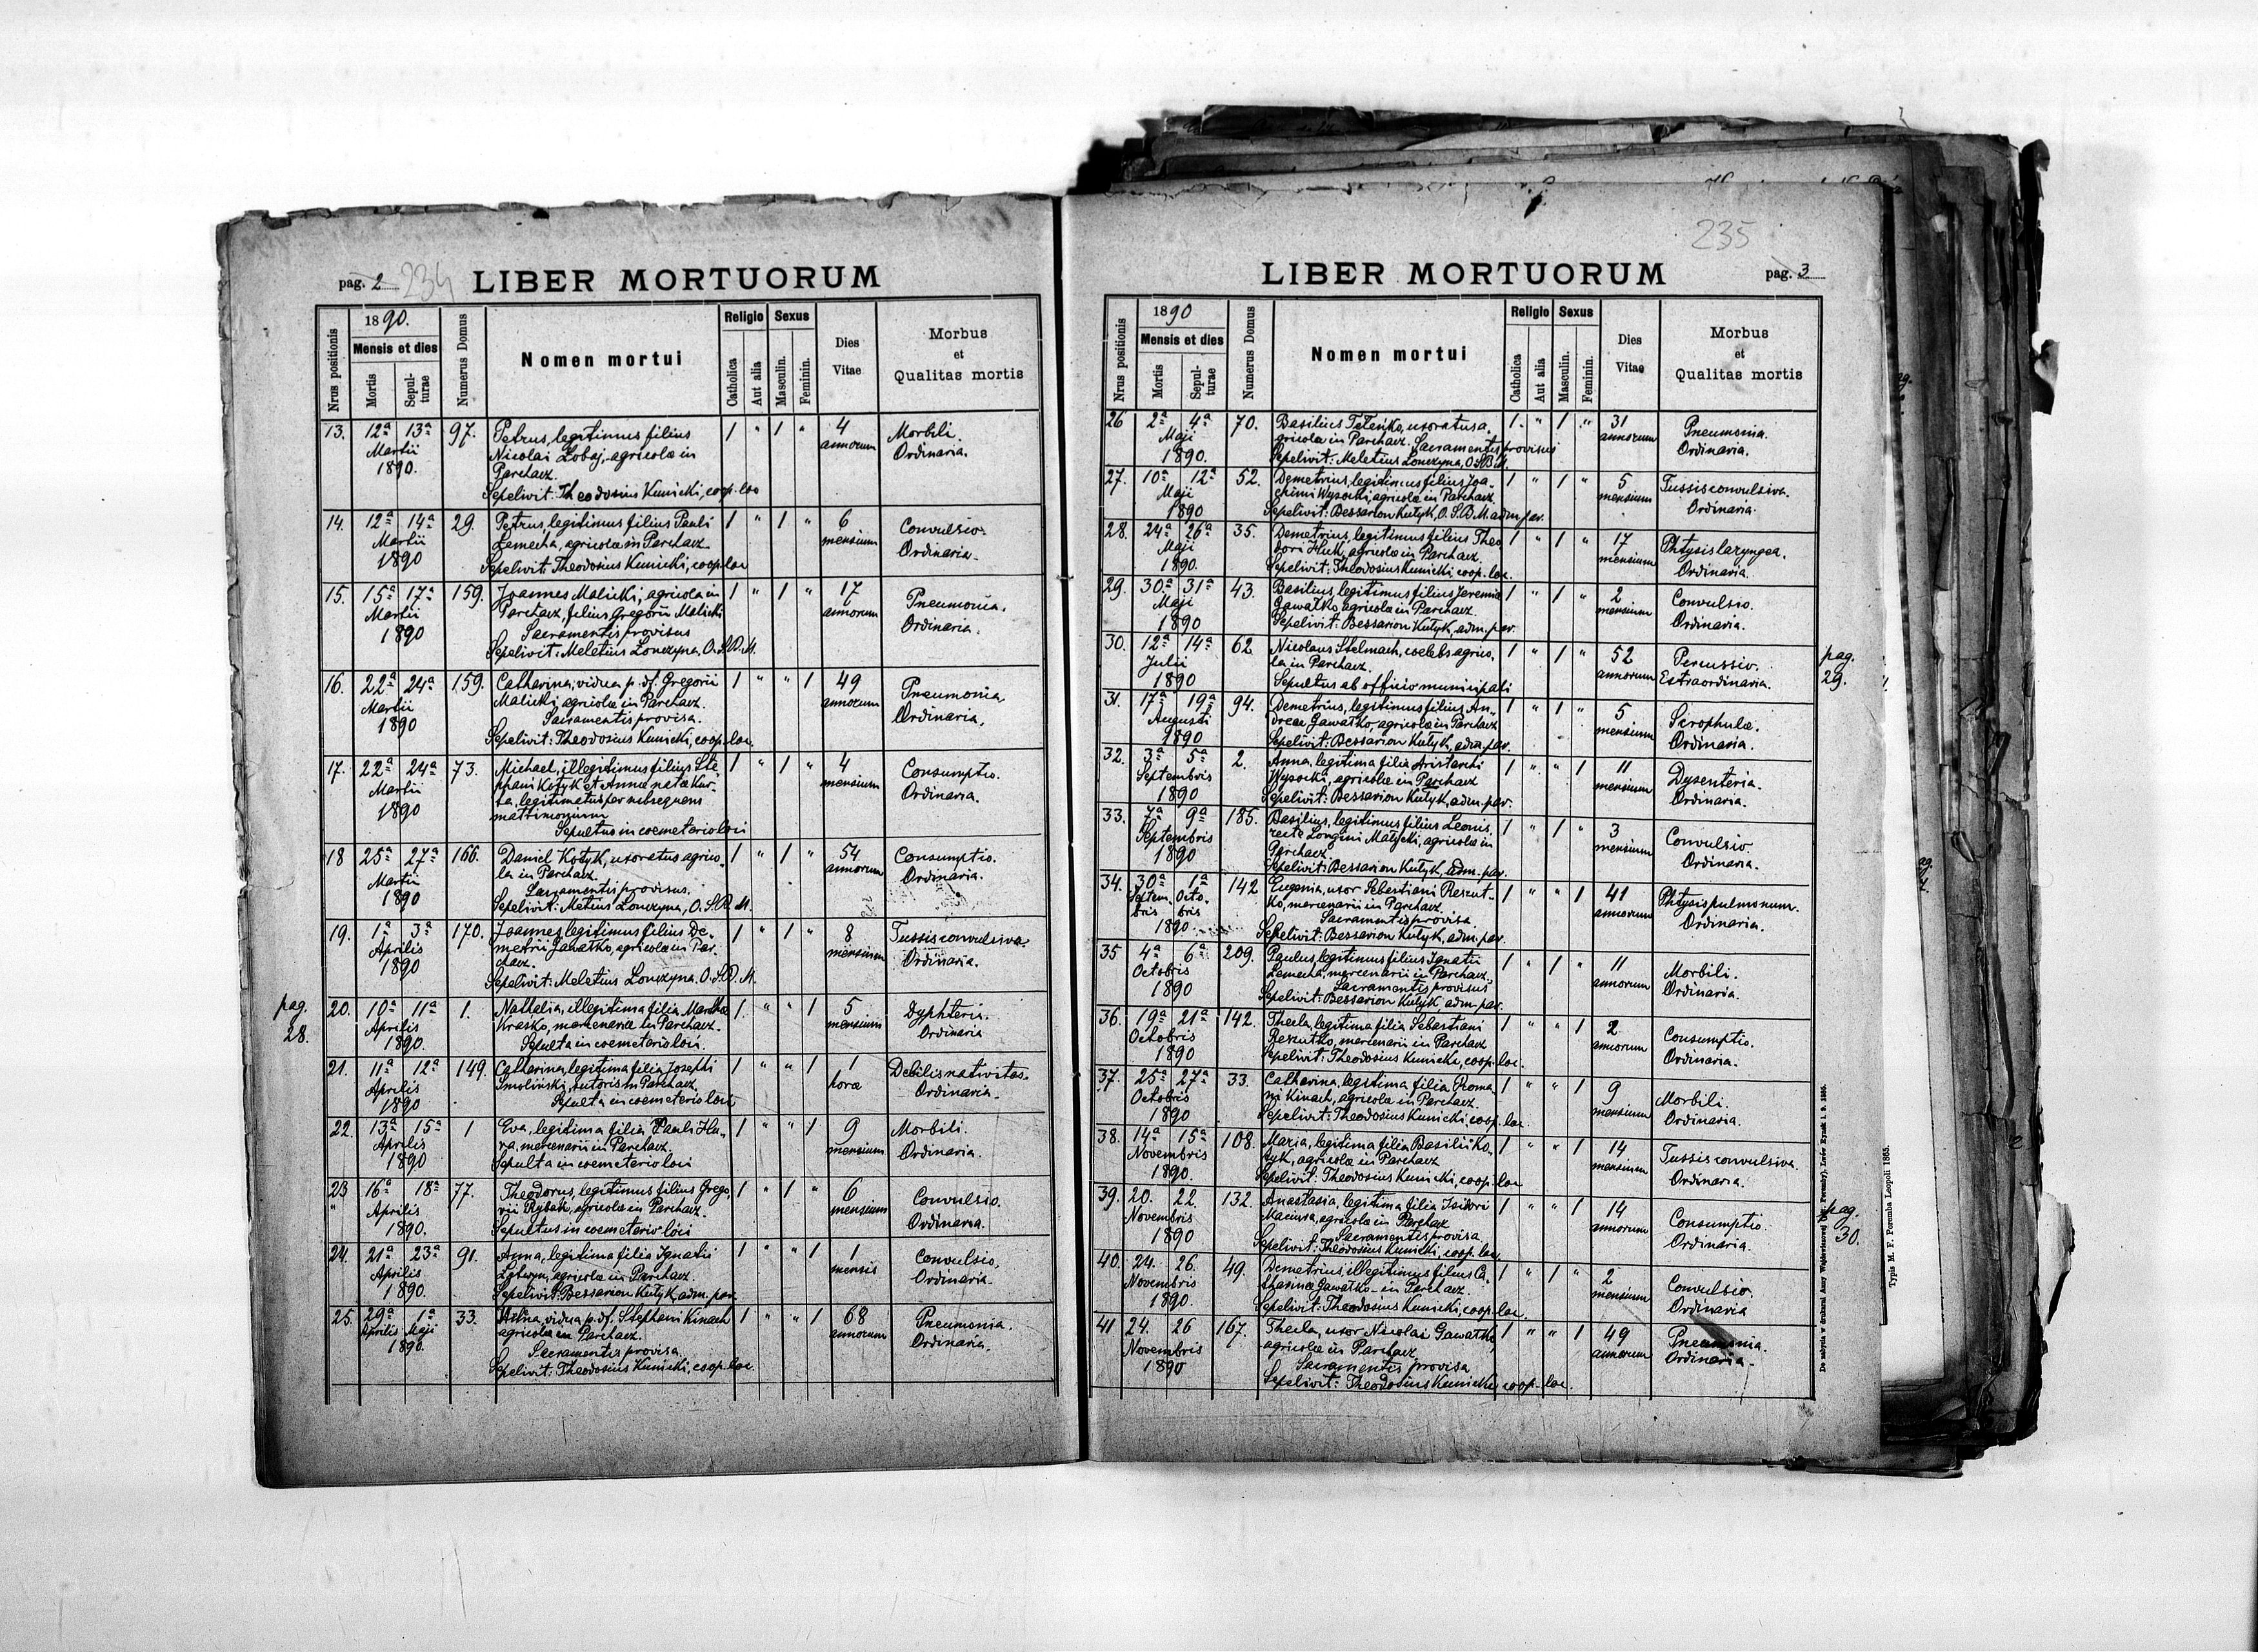 pag. 2 234 LIBER MORTUORUM
Nrus positionis
1890.
Mensis et dies
Mortis
Sepulturae
Numerus Domus
Nomen mortui
Religio
Catholica
Aut alia
Sexus
Masculin.
Feminin.
Dies
Vitae
Morbus
et
Qualitas mortis
13. 12a 13a 97. Petrus, legitimus filius 1 " 1 " 4 Morbili.
Martii Nicolai Lobaj, agricolæ in annorum Ordinaria.
1890. Parchacz.
Sepelivit: Theodosius Kunicki, coop. loc
14. 12a 14a 29. Petrus, legitimus filius Pauli 1 " 1 " 6 Convulsio.
Martii Lemecha, agricolæ in Parchacz mensium Ordinaria.
1890 Sepelivit: Theodosius Kunicki, coop. loc
15. 15a 17a 159. Joannes Malicki, agricola in 1 " 1 " 17 Pneumonia.
Martii Parchacz, filius Gregorii Malicki annorum Ordinaria.
1890 Sacramentis provisus
Sepelivit: Meletius Lonczyna, O.S.B.M.
16. 22a 24a 159. Catharina, vidua p. df. Gregorii 1 " " 1 49 Pneumonia,
Martii Malicki, agricolæ in Parchacz. annorum Ordinaria.
1890 Sacramentis provisa.
Sepelivit: Theodosius Kunicki, coop. loc.
17. 22a 24a 73. Michael, illegitimus filius Ste- 1 " 1 " 4 Consumptio.
Martii phani Kotyk et Annæ natæ Kur- mensium Ordinaria.
1890 ta, legitimatus per subsequens
matrimonium
Sepultus in coemeterio loci
18 25a 27a 166. Daniel Kotyk, uxoratus agrico- 1 " 1 " 54 Consumptio.
Martii la in Parchacz. annorum Ordinaria.
1890 Sacramentis provisus.
Sepelivit: Metius Lonczyna, O.S.B.M.
19. 1a 3a 170. Joannes, legitimus filius De- 1 " 1 " 8 Tussis convulsiva.
Aprilis metrii Gawatko, agricolæ in Par- mensium Ordinaria.
1890 chacz.
Sepelivit: Meletius Lonczyna O.S.B.M.
pag.
28.
20. 10a 11a 1. Nathalia, illegitima filia Marthæ 1. " " 1 5 Dyphteris.
Aprilis Krasko, mercenariæ in Parchacz. mensium Ordinaria
1890. Sepulta in coemeterio loci.
21. 11a 12a 149. Catharina, legitima filia Josephi 1 " " 1 1 Debilis nativitas.
Aprilis Smoliński, sutoris in Parchacz. hora Ordinaria.
1890 Sepulta in coemeterio loci
22. 13a 15a 1 Eva, legitima filia Pauli Hu- 1 " " 1 9 Morbili.
Aprilis ra, mercenarii in Parchacz. mensium Ordinaria.
1890 Sepulta in coemeterio loci
23 16a 18a 77. Theodorus, legitimus filius Grego- 1 " 1 " 6 Convulsio.
" Aprilis rii Rybak, agricolæ in Parchacz. mensium Ordinaria.
1890. Sepultus in coemeterio loci
24. 21a 23a 91. Anna, legitima filia Ignatii 1 " " 1 1 Convulsio,
Aprilis agricolæ in Parchacz. mensis Ordinaria.
1890. Sepelivit: Bessarion Kutyk, adm. par.
25. 29a 1a 33. Anna, vidua p. df. Stephani Kinach 1 " " 1 68 Pneumonia.
Aprilis Maji agricolæ in Parchacz. annorum Ordinaria.
1890. Sacramentis provisa.
Sepelivit: Theodosius Kunicki, coop. loc.
235
LIBER MORTUORUM pag. 3
Nrus positionis
1890
Mensis et dies
Mortis
Sepulturae
Numerus Domus
Nomen mortui
Religio
Catholica
Aut alia
Sexus
Masculin.
Feminin.
Dies
Vitae
Morbus
et
Qualitas mortis
26 2a 4a 70. Basilius Telenko, uxoratus a- 1. " 1 " 31 Pneumonia.
Maji gricola in Parchacz. Sacramentis provisus annorum Ordinaria.
1890. Sepelivit: Meletius Lonczyna, O.S.B.M.
27. 10a 12a 52. Demetrius, legitimus filius Joa- 1 " 1 " 5 Tussis convulsiva.
Maji chimi Wysocki, agricolæ in Parchacz. mensium Ordinaria.
1890 Sepelivit: Bessarion Kutyk, O.S.B.M. adm. par.
28. 24a 26a 35. Demetrius, legitimus filius Theo 1 " 1 " 17 Phtysis laryngea.
Maji dori Huk, agricolæ in Parchacz. mensium Ordinaria.
1890. Sepelivit: Theodosius Kunicki coop. loc.
29. 30a 31a 43. Basilius, legitimus filius Jeremiæ 1 " 1 " 2 Convulsio.
Maji Gawatko, agricolæ in Parchacz. mensium Ordinaria.
1890 Sepelivit: Bessarion Kutyk, adm. par.
30. 12a 14a 62 Nicolaus Stelmach, coelebs agrico- 1 " 1 " 52 Percussio.
Julii la in Parchacz. annorum Extraordinaria.
1890 Sepultus ab officio municipali
pag.
29.
31. 17a 19a 94. Demetrius, legitimus filius An- 1 " 1 " 5 Scrophulæ.
Augusti dreæ Gawatko, agricolæ in Parchacz mensium Ordinaria.
1890 Sepelivit: Bessarion Kutyk, adm. par.
32. 3a 5a 2. Anna, legitima filia Aristarchi 1 " " 1 11 Dysenteria.
Septembris Wysocki, agricolæ in Parchacz mensium Ordinaria.
1890 Sepelivit: Bessarion Kutyk, adm. par.
33. 7a 9a 185. Basilius, legitimus filius Leonis, 1 " 1 " 3 Convulsio
Septembris recte Longini Matycki, agricolæ in mensium Ordinaria.
1890 Parchacz.
Sepelivit: Bessarion Kutyk, adm. par.
34. 30a 1a 142 Eugenia, uxor Sebestiani Reszut- 1 " " 1 41 Phtysis pulmonum.
Septem- Octo- ko, mercenarii in Parchacz annorum Ordinaria.
bris bris Sacramentis provisa
1890. Sepelivit: Bessarion Kutyk, adm. par.
35 4a 6a 209. Paulus, legitimus filius Ignatii 1 " 1 " 11 Morbili.
Octobris Lemecha, mercenarii in Parchacz. annorum Ordinaria.
1890 Sacramentis provisus
Sepelivit: Bessarion Kutyk, adm. par.
36. 19a 21a 142. Thecla, legitima filia Sebastiani 1 " " 1 2 Consumptio.
Octobris Reszutko, mercenarii in Parchacz annorum Ordinaria.
1890 Sepelivit: Theodosius Kunicki, coop. loc.
37. 25a 27a 33. Catharina, legitima filia Roma- 1 " " 1 9 Morbili.
Octobris ni Kinach, agricolæ in Parchacz. mensium Ordinaria.
1890 Sepelivit: Theodosius Kunicki coop. loc.
38. 14a 15a 108. Maria, legitima filia Basilii Ko- 1 " " 1 14 Tussis convulsiva.
Novembris tyk, agricolæ in Parchacz mensium Ordinaria.
1890. Sepelivit: Theodosius Kunicki, coop. loc
39. 20. 22. 132. Anastasia, legitima filia Isidori 1 " " 1 14 Consumptio.
Novembris agricolæ in Parchacz annorum Ordinaria.
1890 Sacramentis provisa
Sepelivit: Theodosius Kunicki, coop. loc
pag.
30.
40. 24. 26. 49. Demetrius, illegitimus filius Ca- 1 " 1 " 2 Convulsio.
Novembris tharinæ Gawatko in Parchacz. mensium Ordinaria
1890. Sepelivit: Theodosius Kunicki, coop. loc.
41 24. 26 167. Thecla, uxor Nicolai Gawatko, 1 " " 1 49 Pneumonia.
Novembris agricolæ in Parchacz annorum Ordinaria.
1890 Sacramentis provisa
Sepelivit: Theodosius Kunicki, coop. loc.
Typis M. F. Poremba Leopoli 1865.